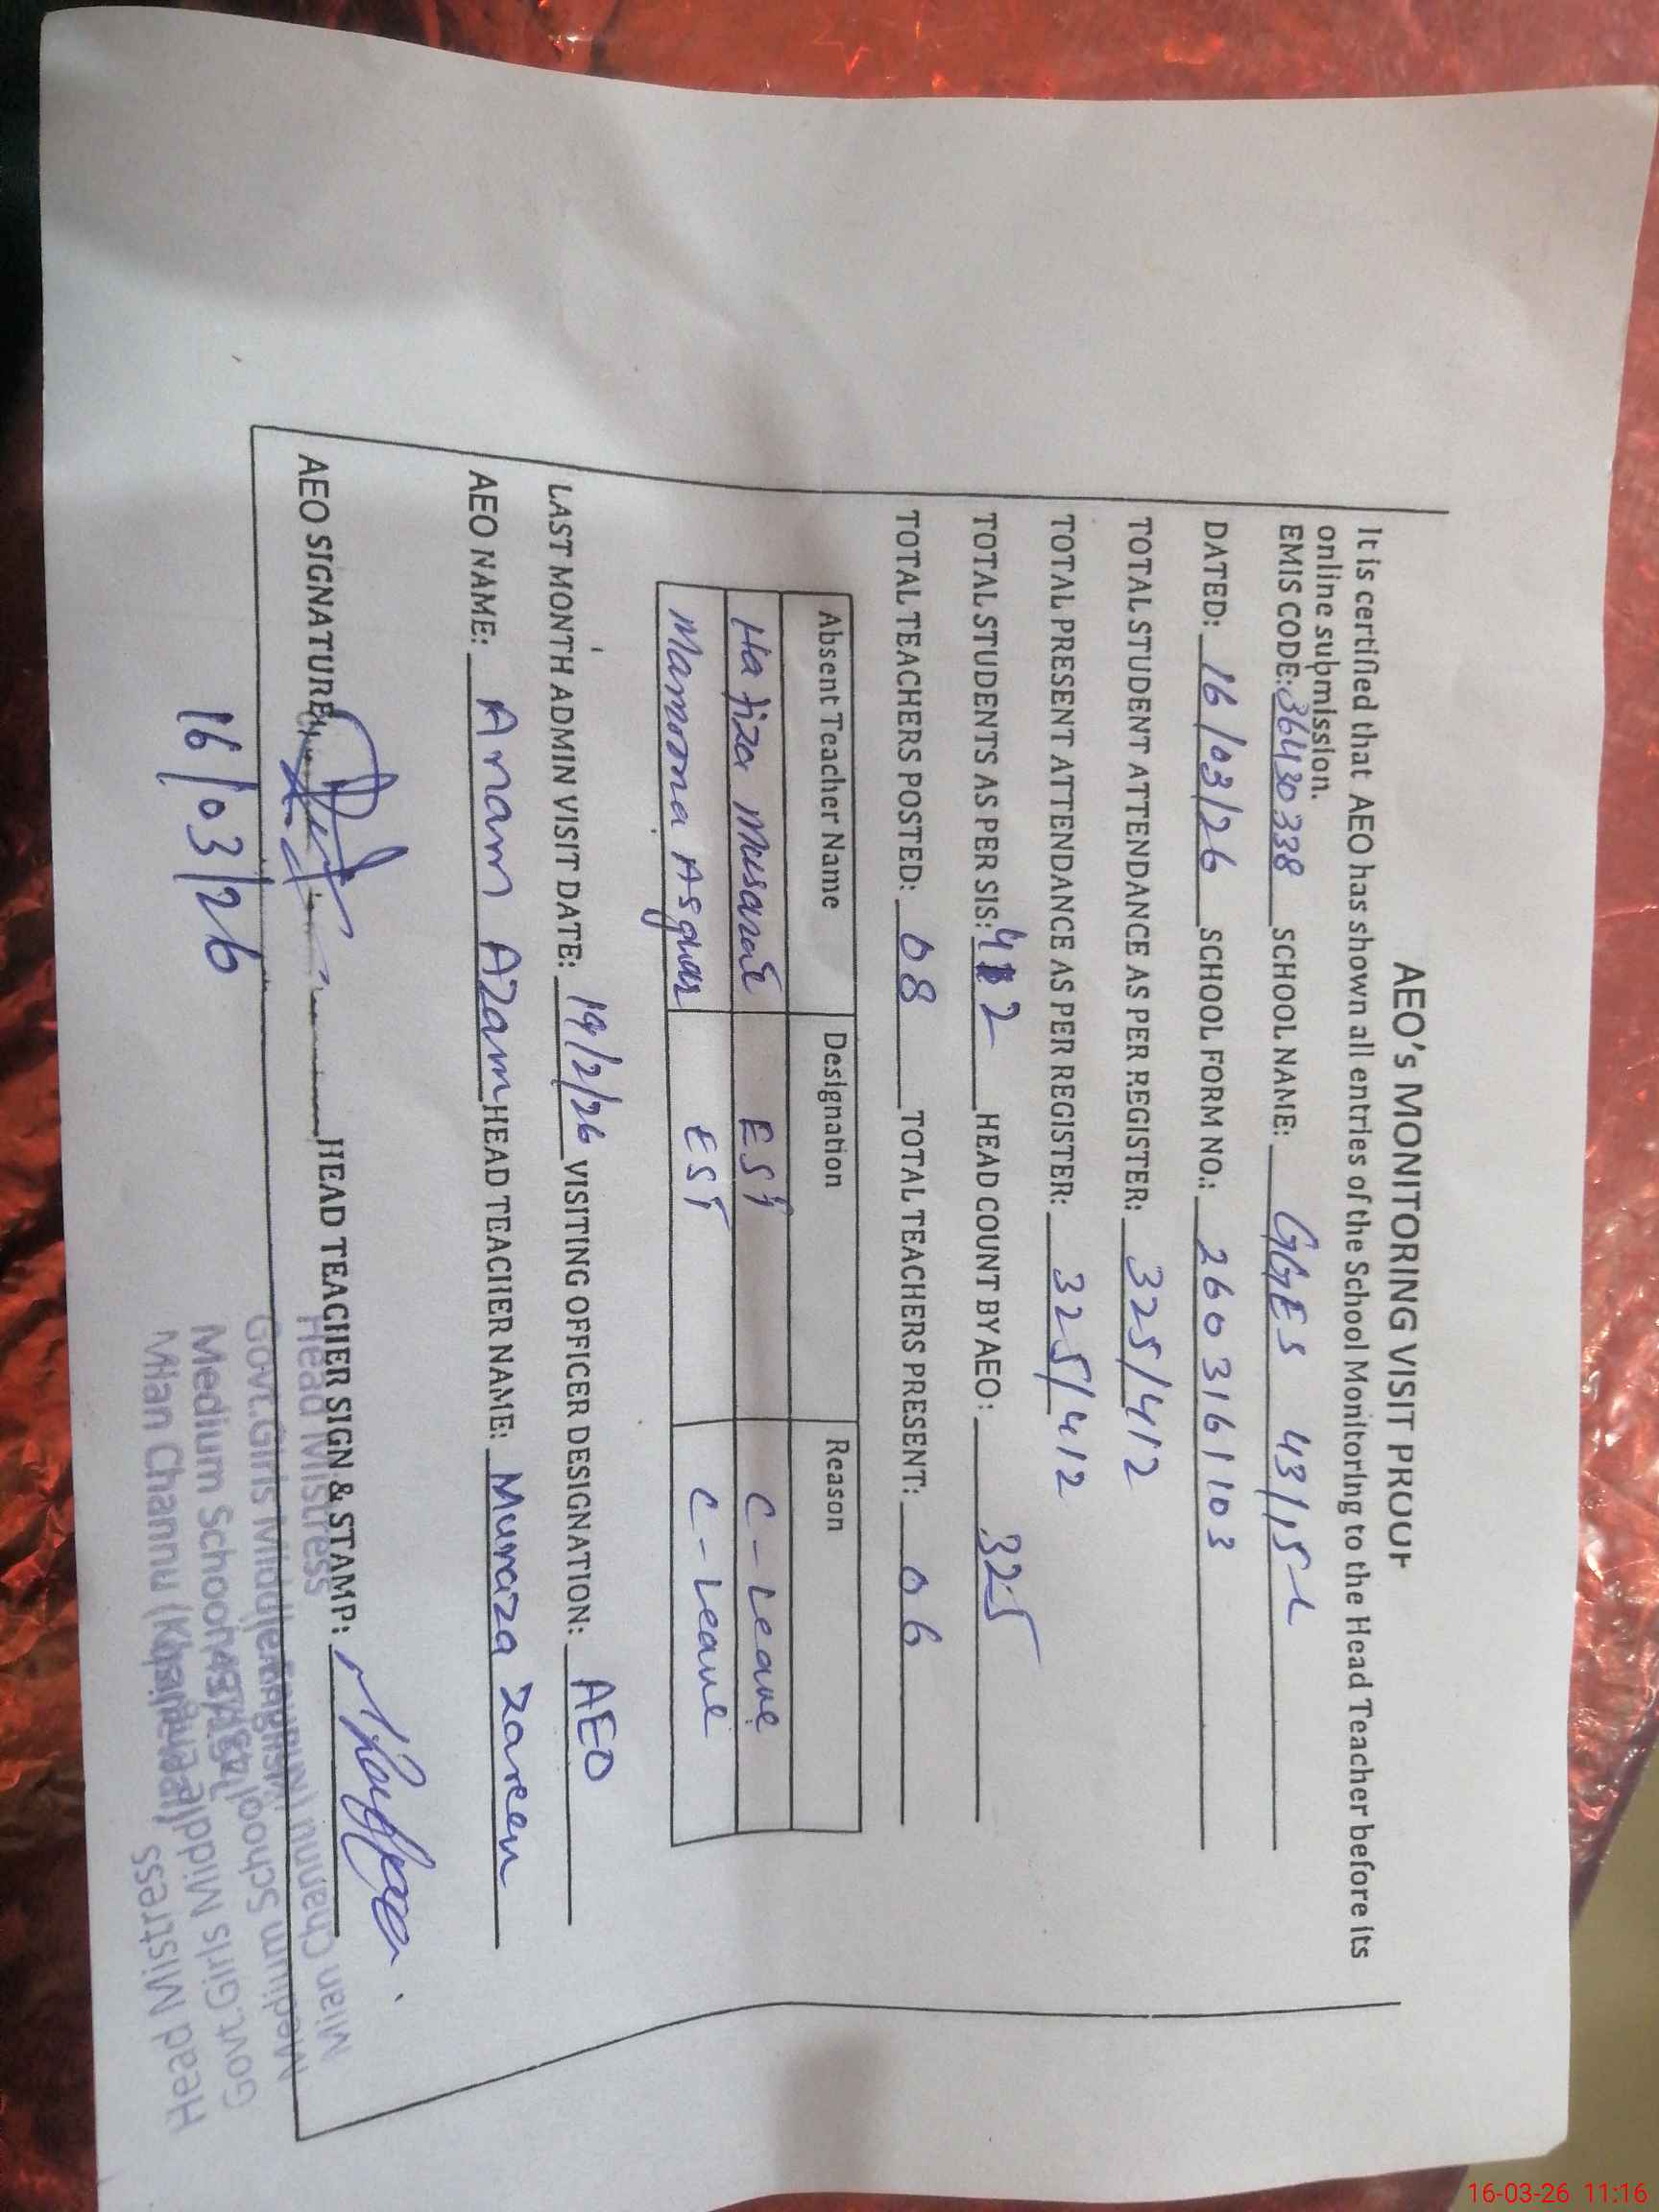 AEO's MONITORING VISIT PROOF
It is certified that AEO has shown all entries of the School Monitoring to the Head Teacher before its
online submission.
EMIS CODE: 36430338 SCHOOL NAME: GGES 43/15-L
DATED: 16/03/26 SCHOOL FORM NO.: 2603161103
TOTAL STUDENT ATTENDANCE AS PER REGISTER: 325/412
TOTAL PRESENT ATTENDANCE AS PER REGISTER: 325/412
TOTAL STUDENTS AS PER SIS: 412 HEAD COUNT BY AEO: 325
TOTAL TEACHERS POSTED: 08 TOTAL TEACHERS PRESENT: 06
Absent Teacher Name Designation Reason
Hafiza Musarat EST C-Leave
Mamona Asghar EST C-Leave
LAST MONTH ADMIN VISIT DATE: 19/2/26 VISITING OFFICER DESIGNATION: AEO
AEO NAME: Anam Azam HEAD TEACHER NAME: Munaza Zareen
AEO SIGNATURE: HEAD TEACHER SIGN & STAMP:
16/03/26
Head Mistress
Govt.Girls Middle English
Medium School
Mian Channu (Khanewal)
Head Mistress
Govt.Girls Middle English
Medium School
Mian Channu
16-03-26 11:16